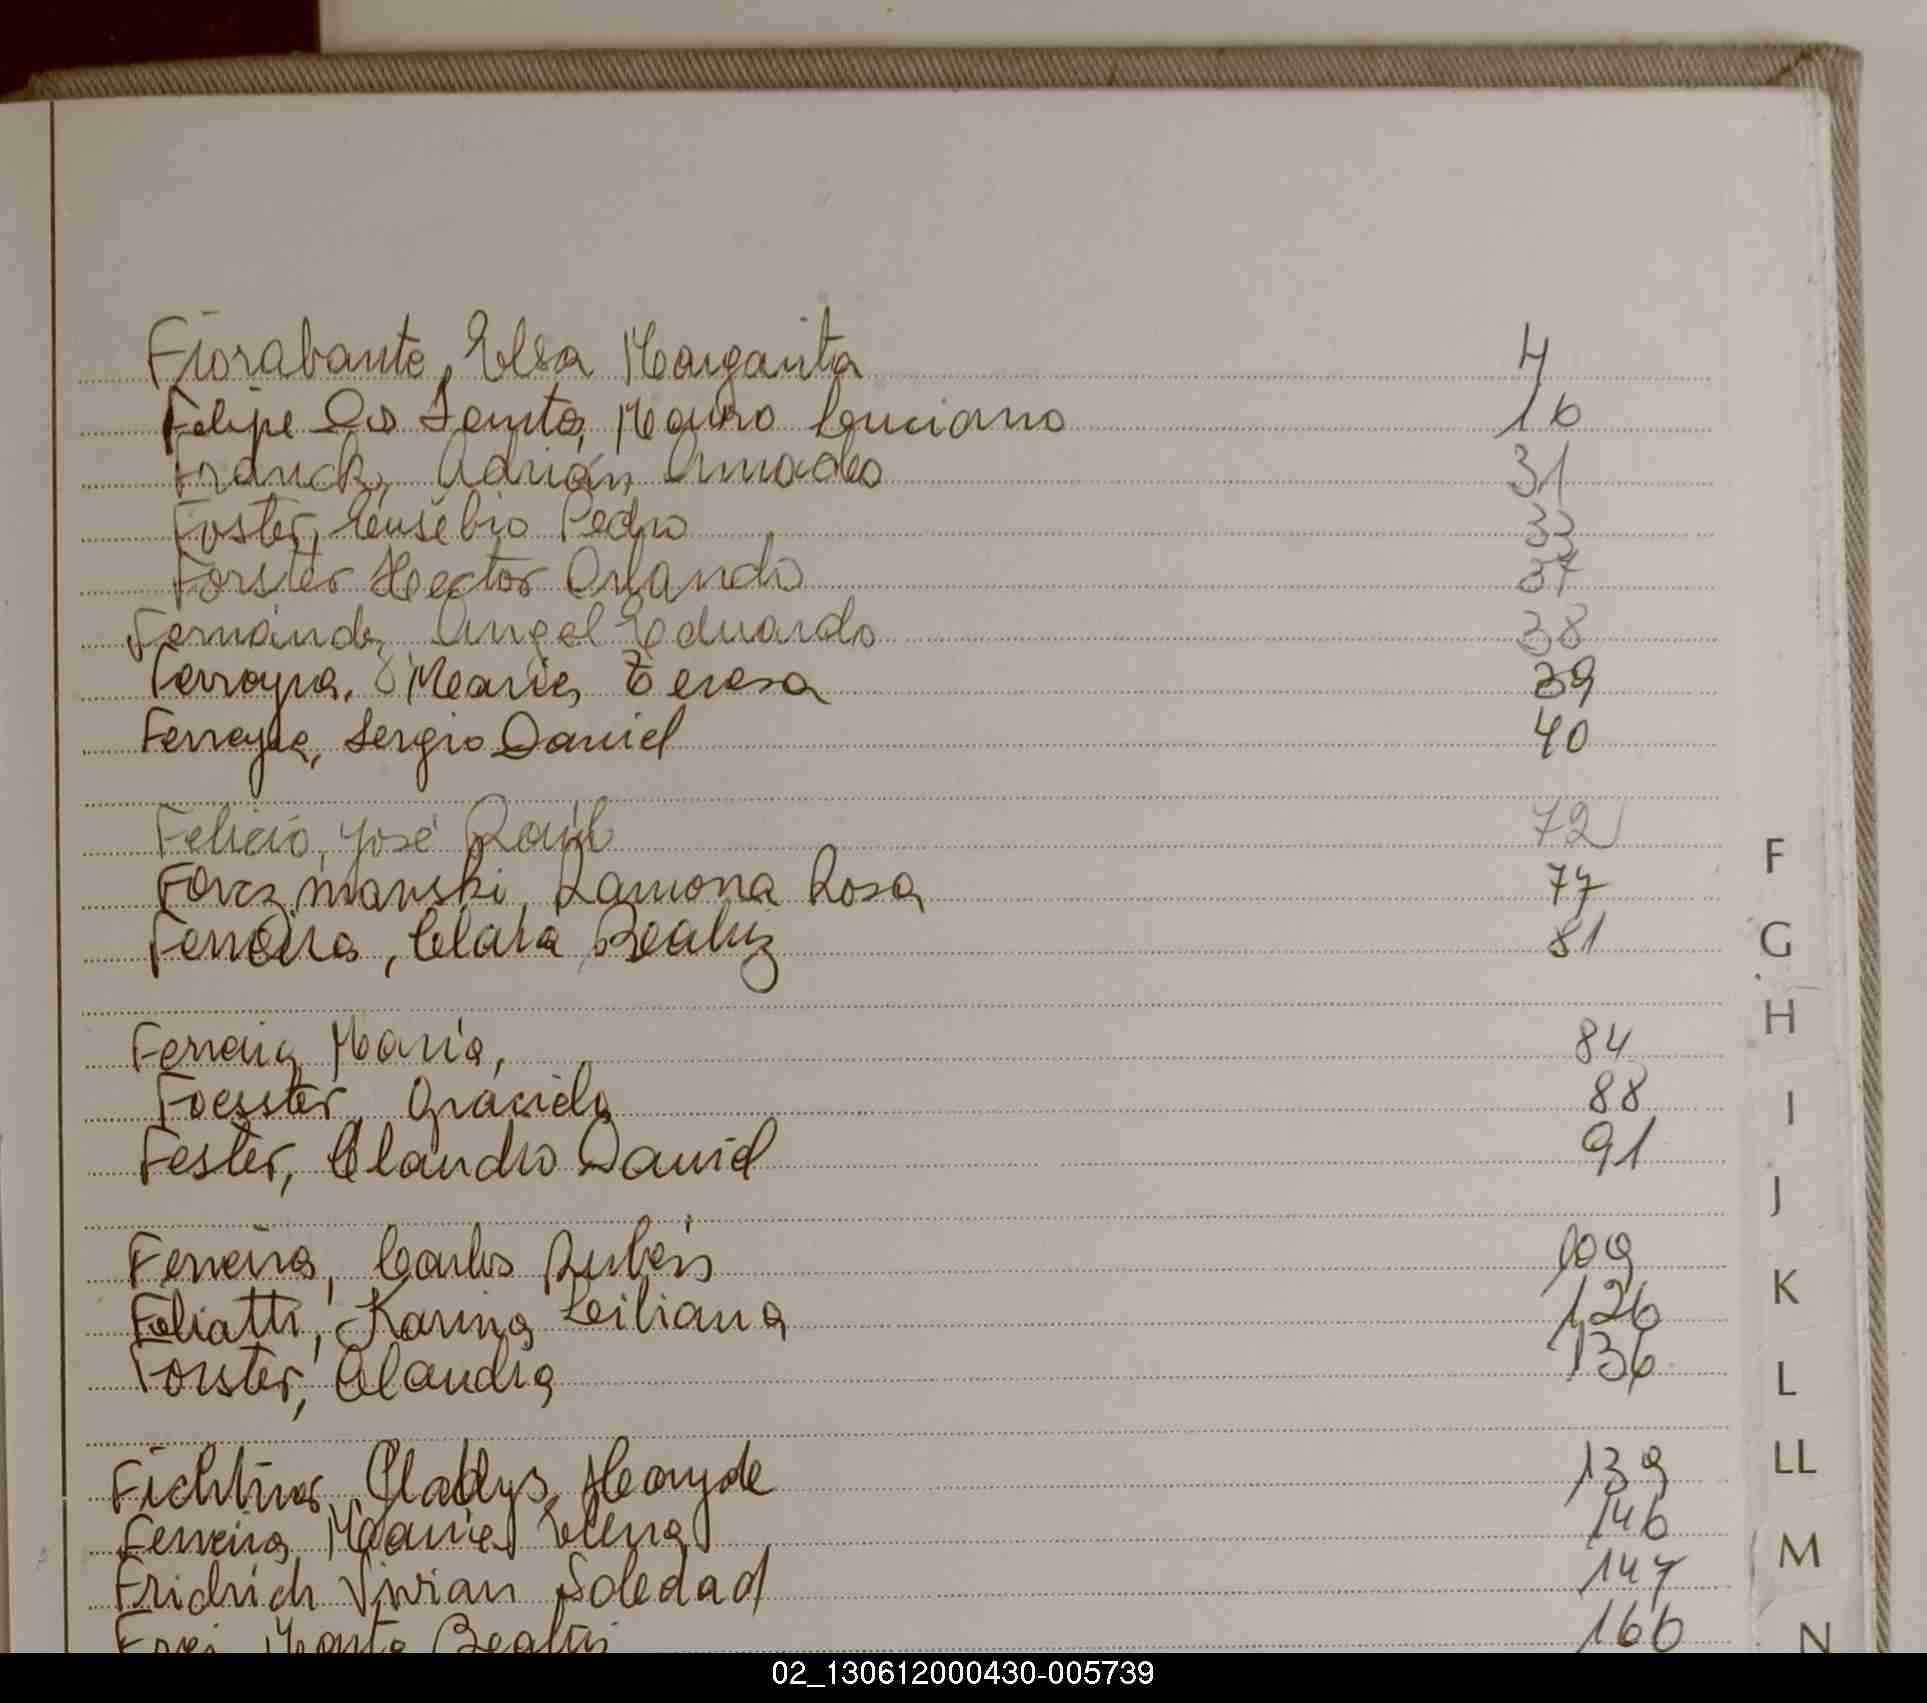 Fiorabante, Elsa Margarita 4
Felipe Do Santo, Mauro Luciano 16
Franck, Adrián Amadeo 31
Foster, Eusebio Pedro 33
Forster Hector Orlando 37
Fernández Angel Eduardo 38
Ferreyra, María Teresa 39
Ferreyra, Sergio Daniel 40
Felicio, José Raúl 72
Forczmanski, Ramona Rosa 77
Ferreira, Clara Beatriz 81
Ferreira María, 84
Foesster, Graciela 88
Fester, Claudio David 91
Ferreira, Carlos Rubén 109
Feliatti, Karina Liliana 126
Forster, Claudia 136
Fichtner, Gladys Hayde 139
Ferreira María Elena 146
Fridrich Vivian Soledad 147
Marta Beatriz 166
F
G
H
I
J
K
L
LL
M
N
02_130612000430-005739